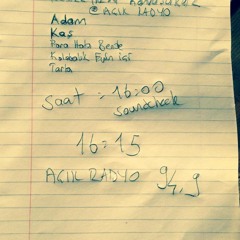 @ AÇIK RADYO
Adam
Kas
Para Hala Bende
Kalabalık Eyln İçi
Tarla
Saat : 16:00
Soundcheck
16:15
AÇIK RADYO 94,9